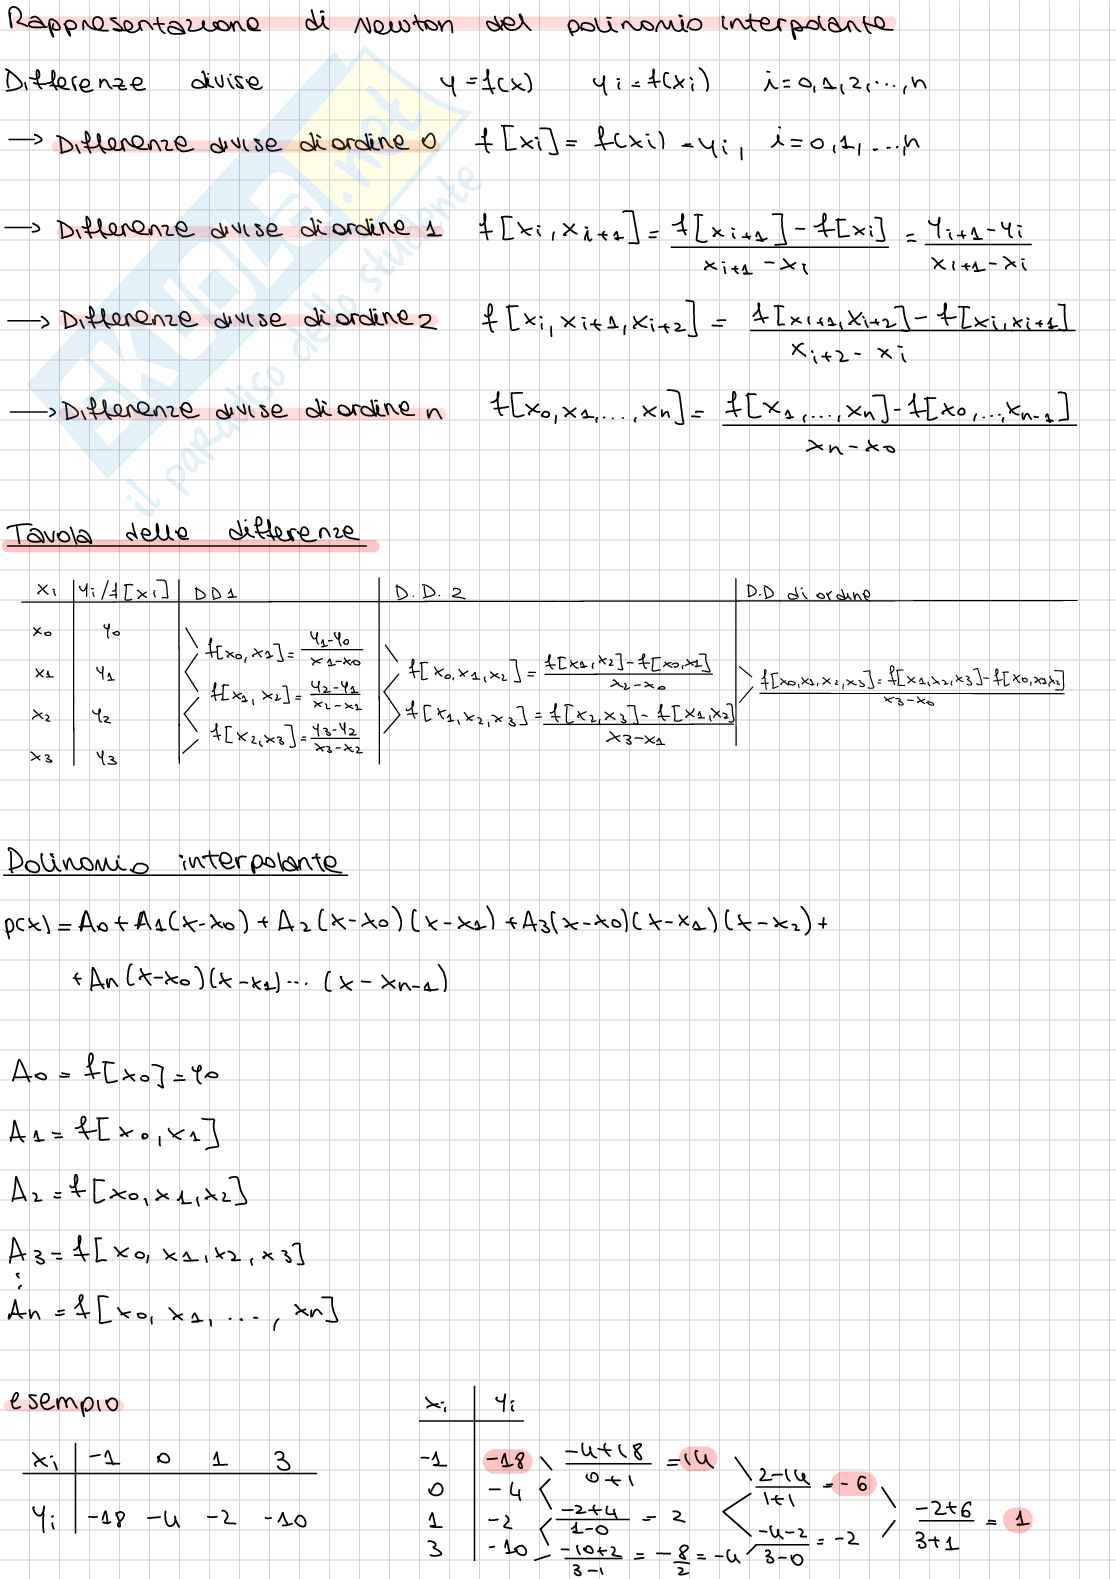 Rappresentazione di Newton del polinomio interpolante
Differenze divise y=f(x) yi=f(xi) i=0,1,2,...,n
→ Differenze divise di ordine 0 f[xi]= f(xi) = yi, i=0,1,...,n
→ Differenze divise di ordine 1 f[xi,xi+1]= (f[xi+1]-f[xi])/(xi+1-xi) = (yi+1-yi)/(xi+1-xi)
→ Differenze divise di ordine 2 f[xi,xi+1,xi+2] = (f[xi+1,xi+2]-f[xi,xi+1])/(xi+2-xi)
→ Differenze divise di ordine n f[x0,x1,...,xn]= (f[x1,...,xn]-f[x0,...,xn-1])/(xn-x0)
SKUOLA.net
il paradiso dello studente
Tavola delle differenze
xi | yi/f[xi] | DD1 | D.D.2 | D.D di ordine
x0 y0
f[x0,x1]= (y1-y0)/(x1-x0)
x1 y1 f[x0,x1,x2]= (f[x1,x2]-f[x0,x1])/(x2-x0)
f[x1,x2]= (y2-y1)/(x2-x1) f[x0,x1,x2,x3]= (f[x1,x2,x3]-f[x0,x1,x2])/(x3-x0)
x2 y2 f[x1,x2,x3]= (f[x2,x3]-f[x1,x2])/(x3-x1)
f[x2,x3]= (y3-y2)/(x3-x2)
x3 y3
Polinomio interpolante
p(x)=A0+A1(x-x0)+A2(x-x0)(x-x1)+A3(x-x0)(x-x1)(x-x2)+
+An(x-x0)(x-x1)...(x-xn-1)
A0=f[x0]=y0
A1=f[x0,x1]
A2=f[x0,x1,x2]
A3=f[x0,x1,x2,x3]
⋮
An=f[x0,x1,...,xn]
esempio
xi | -1 0 1 3
yi | -18 -4 -2 -10
xi | yi
-1 | -18 (-4+18)/(0+1) =14 (2-14)/(1+1) =-6
0 | -4
1 | -2 (-2+4)/(1-0) = 2 (-4-2)/(3-0) = -2 (-2+6)/(3+1) = 1
3 | -10 (-10+2)/(3-1) = -8/2 = -4